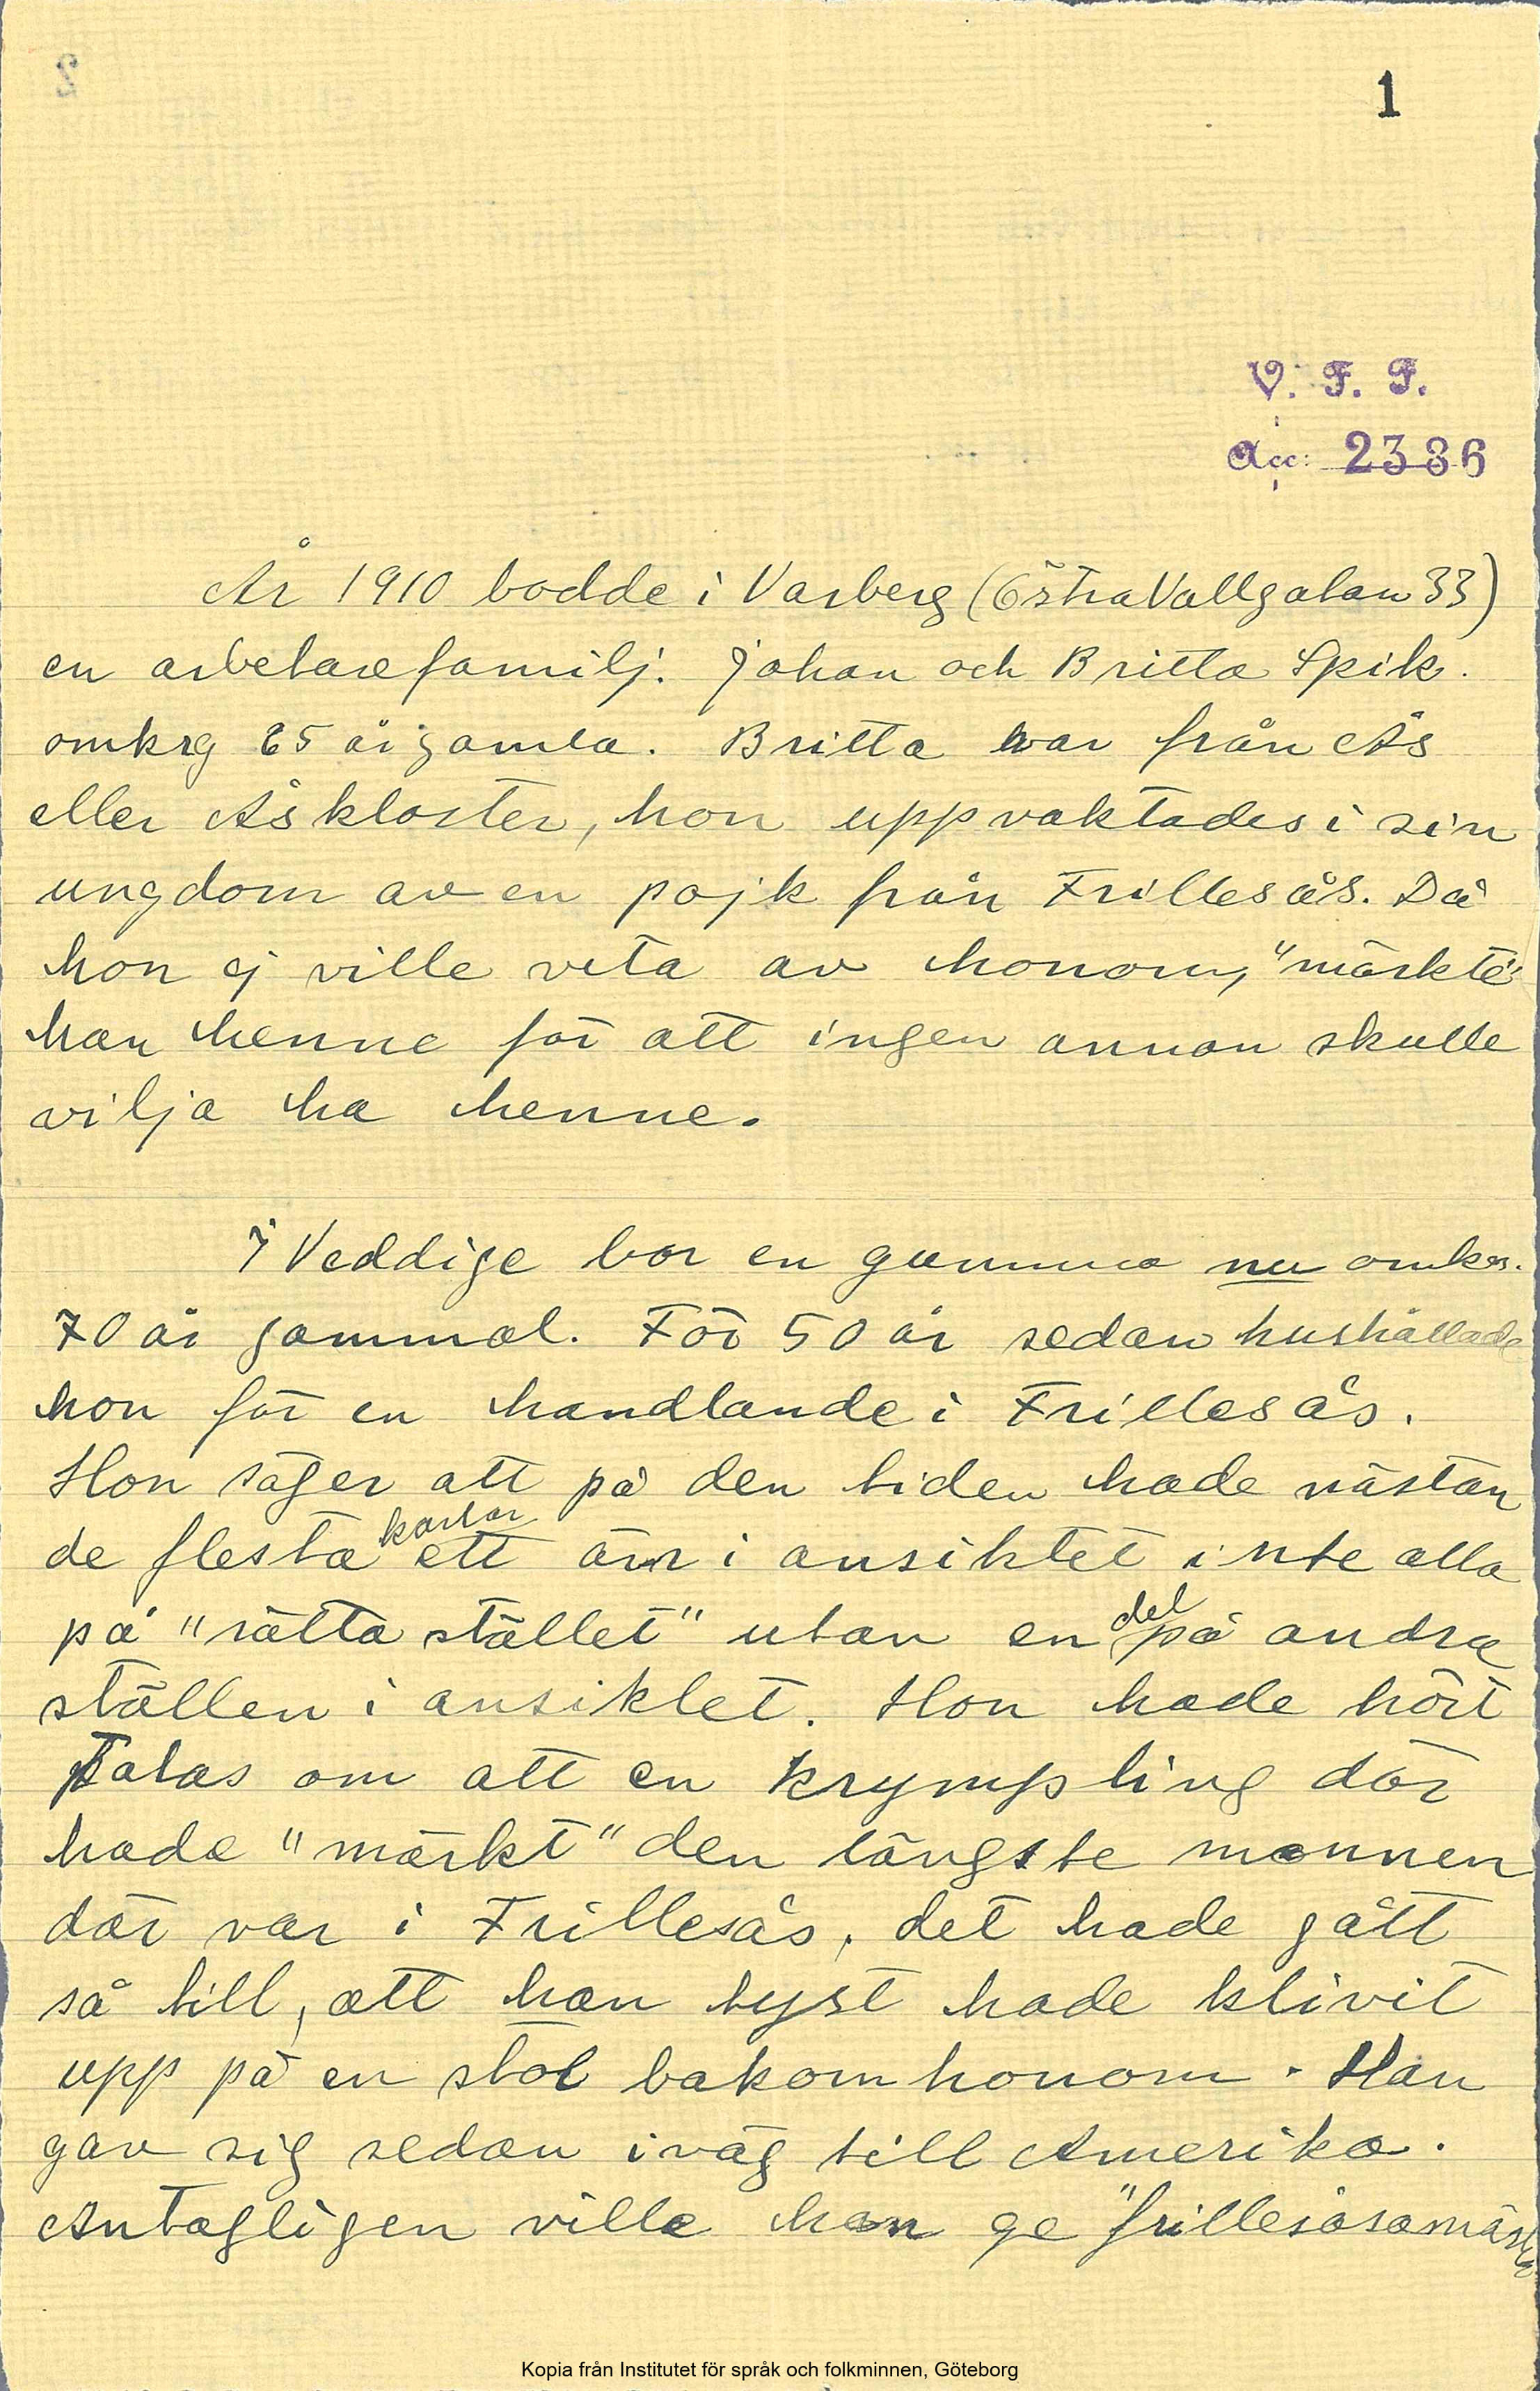 1
V. F. F.
Acc: 2336
År 1910 bodde i Varberg (Östra Vallgatan 33)
en arbetarefamilj. Johan och Britta Spik.
omkrg 65 år gamla. Britta var från Ås
eller Åskloster, hon uppvaktades i sin
ungdom av en pojk från Frillesås. Då
hon ej ville veta av honom, "märkte"
han henne för att ingen annan skulle
vilja ha henne.
I Veddige bor en gumma nu omkr.
70 år gammal. För 50 år sedan hushållade
hon för en handlande i Frillesås.
Hon säger att på den tiden hade nästan
de flesta karlar ett ärr i ansiktet inte alla
på "rätta stället" utan en del på andra
ställen i ansiktet. Hon hade hört
talas om att en krympling där
hade "märkt" den längste mannen
där var i Frillesås, det hade gått
så till, att han tyst hade klivit
upp på en stol bakom honom. Han
gav sig sedan iväg till Amerika.
Antagligen ville han ge "frillesåsamärke
Kopia från Institutet för språk och folkminnen, Göteborg